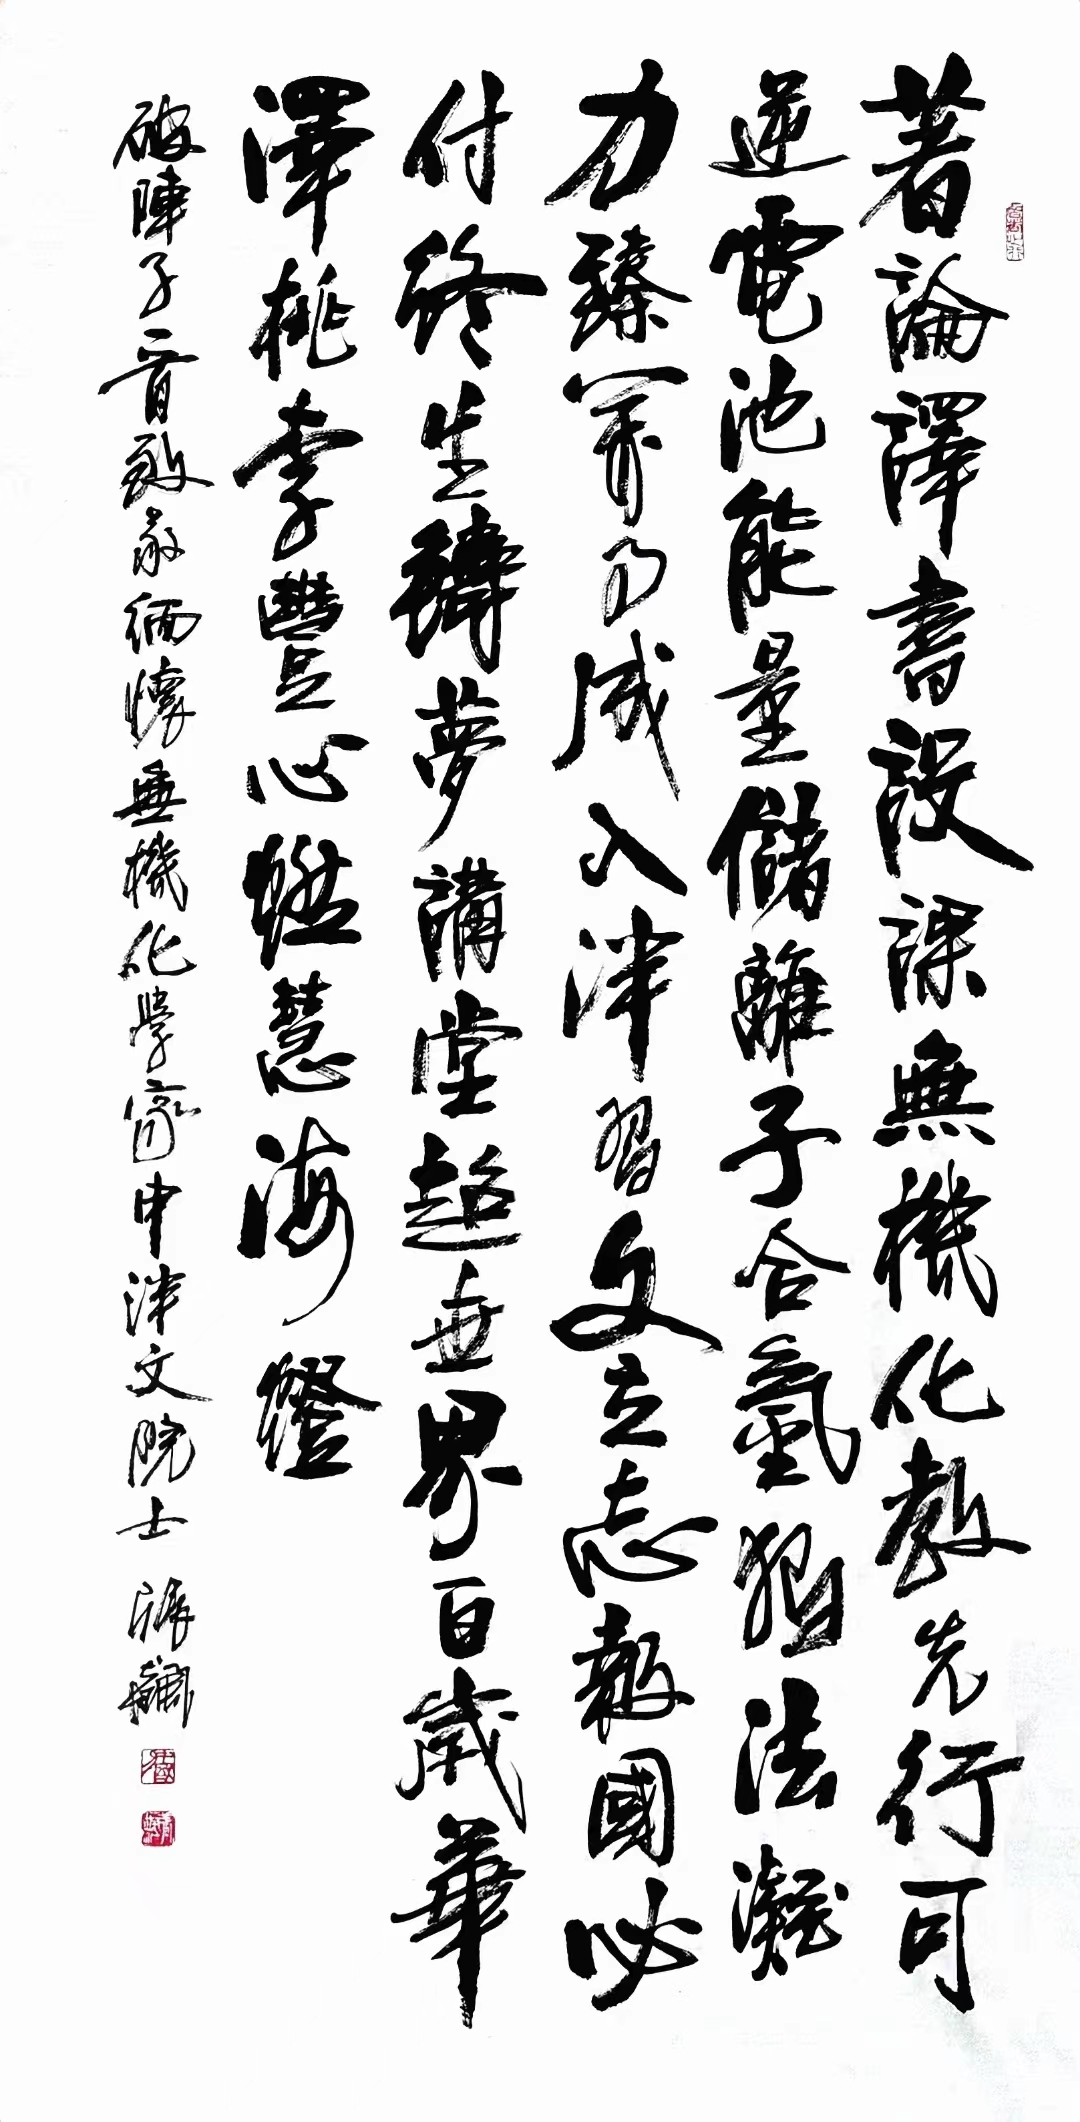 著論譯書設課無機化教先行可
逆電池能量儲離子合氫法凝
力臻成入泮習文立志報國必
付終生夢講堂超世界百歲華
澤桃李豐心燃慧海燈
破陣子一首致敬緬懷無機化學家申泮文院士 張